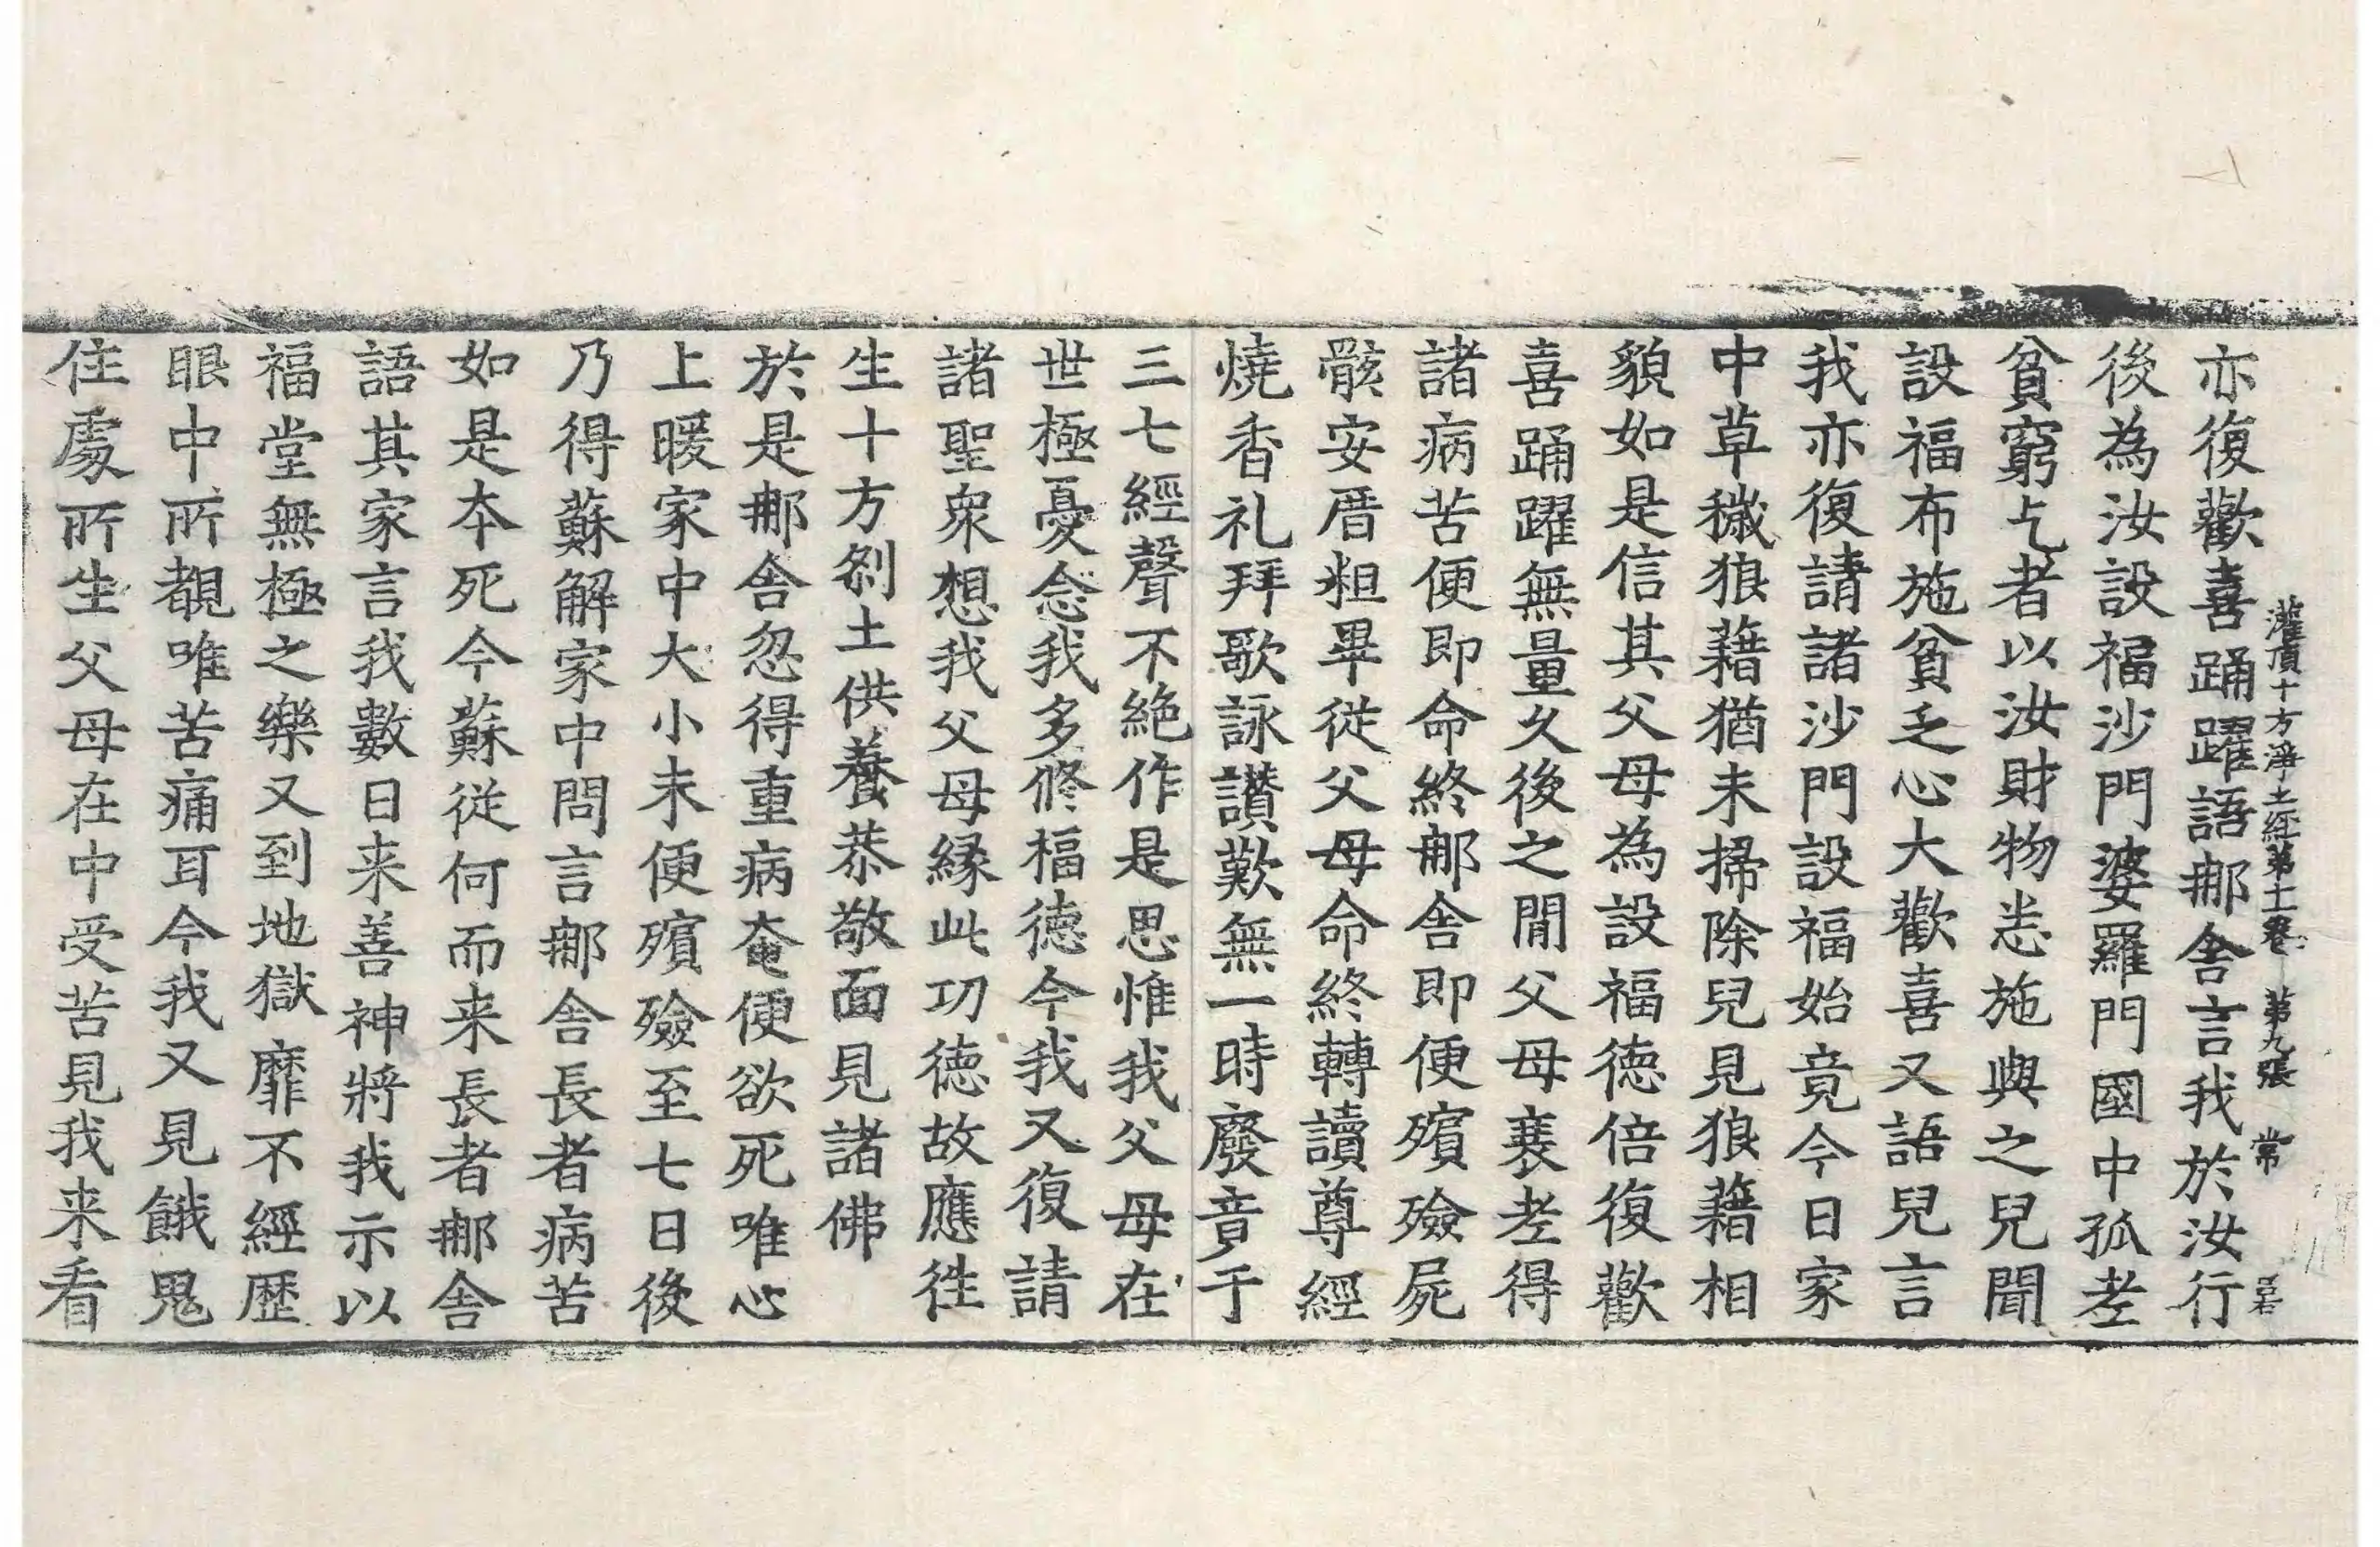 灌頂十方淨土經第十一卷 第九張 常
亦復歡喜踊躍語䣍舍言我於汝行
後為汝設福沙門婆羅門國中孤老
貧窮乞者以汝財物悉施與之兒聞
設福布施貧乏心大歡喜又語兒言
我亦復請諸沙門設福始竟今日家
中草穢狼藉猶未掃除兒見狼藉相
貌如是信其父母為設福德倍復歡
喜踊躍無量久後之閒父母衰老得
諸病苦便即命終䣍舍即便殯殮屍
骸安厝粗畢從父母命終轉讀尊經
燒香礼拜歌詠讃歎無一時廢音于
三七經聲不絶作是思惟我父母在
世極憂念我多修福德今我又復請
諸聖衆想我父母緣此功德故應徃
生十方刹土供養恭敬面見諸佛
於是䣍舍忽得重病奄便欲死唯心
上暖家中大小未便殯殮至七日後
乃得蘇解家中問言䣍舍長者病苦
如是本死今蘇從何而来長者䣍舍
語其家言我數日来善神將我示以
福堂無極之樂又到地獄靡不經歷
眼中所覩唯苦痛耳今我又見餓鬼
住處所生父母在中受苦見我来看